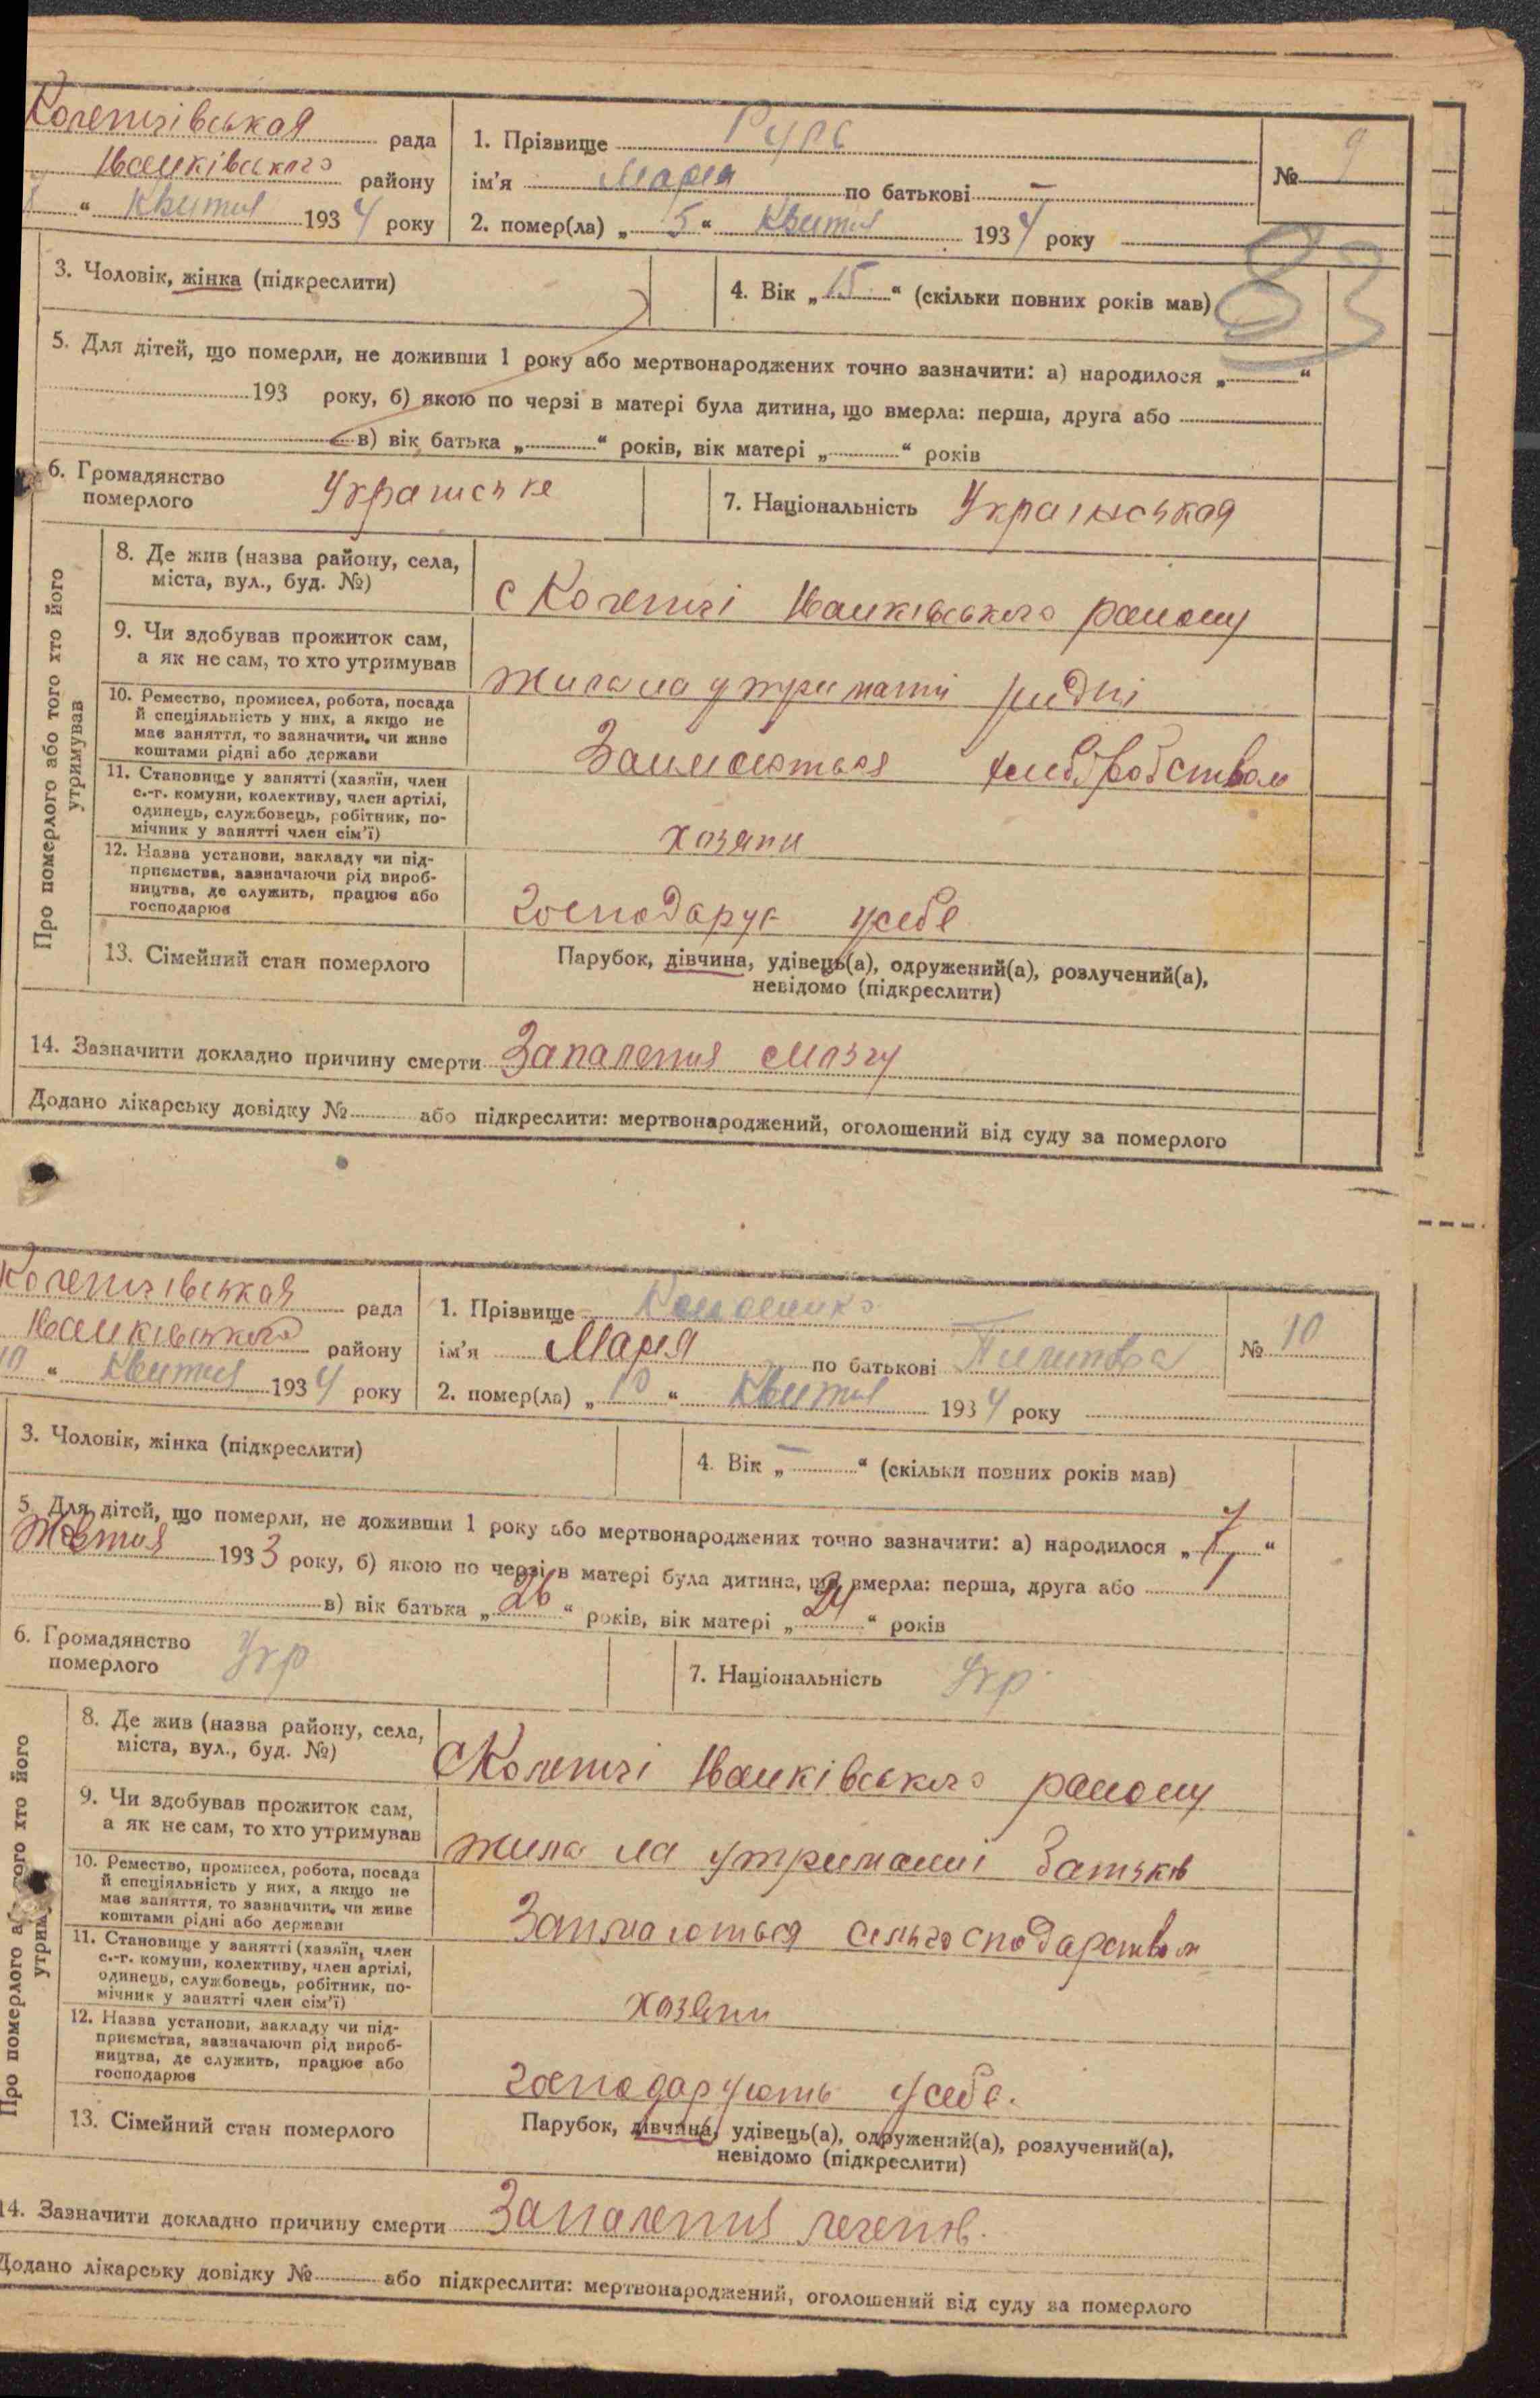 Коленцівська рада
1. Прізвище Руль
№ 9
Іванківського району
ім'я Марія по батькові —
" Квітня 1934 року
2. помер(ла) „5“ Квітня 1934 року
83
3. Чоловік, жінка (підкреслити)
4. Вік „15“ (скільки повних років мав)
5. Для дітей, що померли, не доживши 1 року або мертвонароджених точно зазначити: а) народилося „ “
193 року, б) якою по черзі в матері була дитина, що вмерла: перша, друга або
в) вік батька „ “ років, вік матері „ “ років
6. Громадянство
померлого
Українське
7. Національність Українська
Про померлого або того хто його
утримував
8. Де жив (назва району, села,
міста, вул., буд. №)
с Коленці Іванківського району
9. Чи здобував прожиток сам,
а як не сам, то хто утримував
жила на утриманні рідні
10. Ремество, промисел, робота, посада
й спеціяльність у них, а якщо не
має заняття, то зазначити, чи живе
коштами рідні або держави
Займаються хліборобством
11. Становище у занятті (хазяїн, член
с.-г. комуни, колективу, член артілі,
одинець, службовець, робітник, по-
мічник у занятті член сім'ї)
хозяин
12. Назва установи, закладу чи під-
приємства, зазначаючи рід вироб-
ництва, де служить, працює або
господарює
господарує у себе
13. Сімейний стан померлого
Парубок, дівчина, удівець(а), одружений(а), розлучений(а),
невідомо (підкреслити)
14. Зазначити докладно причину смерти Запалення мозгу
Додано лікарську довідку № або підкреслити: мертвонароджений, оголошений від суду за померлого
Коленцівська рада
1. Прізвище
№ 10
Іванківського району
ім'я Марія по батькові Пилипова
10 " Квітня 1934 року
2. помер(ла) „10“ Квітня 1934 року
3. Чоловік, жінка (підкреслити)
4. Вік „—“ (скільки повних років мав)
5. Для дітей, що померли, не доживши 1 року або мертвонароджених точно зазначити: а) народилося „7“
Жовтня 1933 року, б) якою по черзі в матері була дитина, що вмерла: перша, друга або
в) вік батька „26“ років, вік матері „24“ років
6. Громадянство
померлого
Укр
7. Національність Укр
Про померлого або того хто його
утримував
8. Де жив (назва району, села,
міста, вул., буд. №)
с Коленці Іванківського району
9. Чи здобував прожиток сам,
а як не сам, то хто утримував
жила на утриманні батьків
10. Ремество, промисел, робота, посада
й спеціяльність у них, а якщо не
має заняття, то зазначити, чи живе
коштами рідні або держави
Займаються сельгосподарством
11. Становище у занятті (хазяїн, член
с.-г. комуни, колективу, член артілі,
одинець, службовець, робітник, по-
мічник у занятті член сім'ї)
хозяин
12. Назва установи, закладу чи під-
приємства, зазначаючи рід вироб-
ництва, де служить, працює або
господарює
господарують у себе.
13. Сімейний стан померлого
Парубок, дівчина, удівець(а), одружений(а), розлучений(а),
невідомо (підкреслити)
14. Зазначити докладно причину смерти Запалення легенів.
Додано лікарську довідку № або підкреслити: мертвонароджений, оголошений від суду за померлого